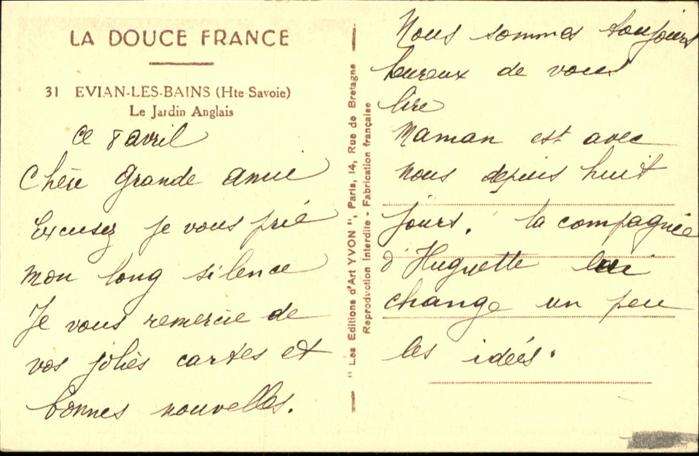 LA DOUCE FRANCE
31 EVIAN-LES-BAINS (Hte Savoie)
Le Jardin Anglais
Ce 8 avril
Chère Grande amie
Excusez je vous prie
mon long silence
Je vous remercie de
vos jolies cartes et
bonnes nouvelles.
" Les Editions d'Art YVON ", Paris, 14, Rue de Bretagne
Reproduction Interdite - Fabrication française
Nous sommes toujours
heureux de vous
lire
Maman est avec
nous depuis huit
jours. la compagnie
d'Huguette lui
change un peu
les idées.